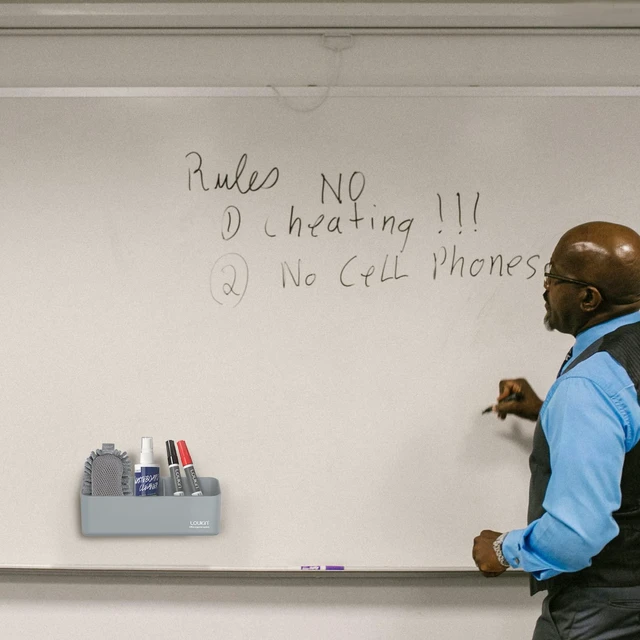 Rules NO
① Cheating !!!
② No Cell Phones
WHITEBOARD
CLEANER
LOUKIT